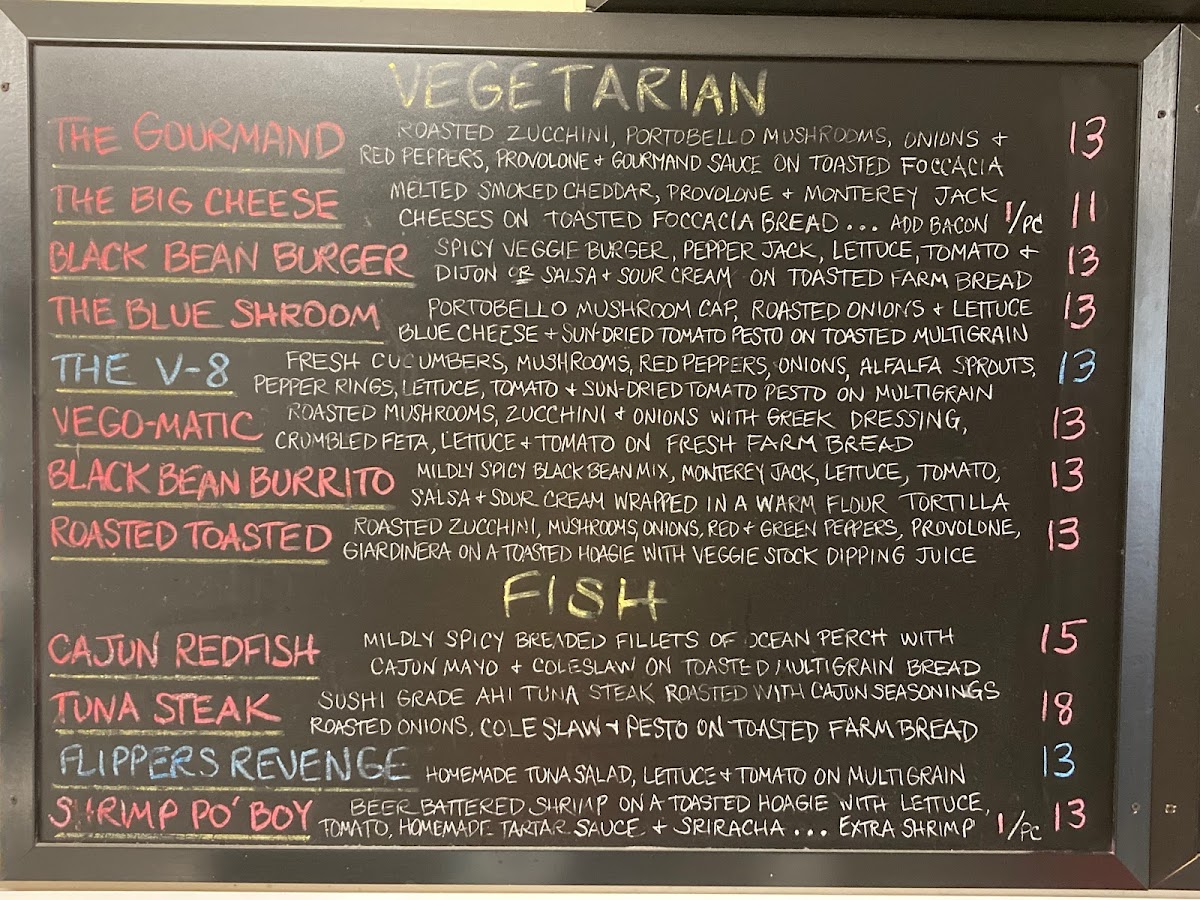 VEGETARIAN
THE GOURMAND ROASTED ZUCCHINI, PORTOBELLO MUSHROOMS, ONIONS + 13
RED PEPPERS, PROVOLONE + GOURMAND SAUCE ON TOASTED FOCCACIA
THE BIG CHEESE MELTED SMOKED CHEDDAR, PROVOLONE + MONTEREY JACK 11
CHEESES ON TOASTED FOCCACIA BREAD... ADD BACON 1/PC
BLACK BEAN BURGER SPICY VEGGIE BURGER, PEPPER JACK, LETTUCE, TOMATO + 13
DIJON OR SALSA + SOUR CREAM ON TOASTED FARM BREAD
THE BLUE SHROOM PORTOBELLO MUSHROOM CAP, ROASTED ONIONS + LETTUCE 13
BLUE CHEESE + SUN-DRIED TOMATO PESTO ON TOASTED MULTIGRAIN
THE V-8 FRESH CUCUMBERS, MUSHROOMS, RED PEPPERS, ONIONS, ALFALFA SPROUTS, 13
PEPPER RINGS, LETTUCE, TOMATO + SUN-DRIED TOMATO PESTO ON MULTIGRAIN
VEGO-MATIC ROASTED MUSHROOMS, ZUCCHINI + ONIONS WITH GREEK DRESSING, 13
CRUMBLED FETA, LETTUCE + TOMATO ON FRESH FARM BREAD
BLACK BEAN BURRITO MILDLY SPICY BLACK BEAN MIX, MONTEREY JACK, LETTUCE, TOMATO, 13
SALSA + SOUR CREAM WRAPPED IN A WARM FLOUR TORTILLA
ROASTED TOASTED ROASTED ZUCCHINI, MUSHROOMS, ONIONS, RED + GREEN PEPPERS, PROVOLONE, 13
GIARDINERA ON A TOASTED HOAGIE WITH VEGGIE STOCK DIPPING JUICE
FISH
CAJUN REDFISH MILDLY SPICY BREADED FILLETS OF OCEAN PERCH WITH 15
CAJUN MAYO + COLESLAW ON TOASTED MULTIGRAIN BREAD
TUNA STEAK SUSHI GRADE AHI TUNA STEAK ROASTED WITH CAJUN SEASONINGS 18
ROASTED ONIONS, COLE SLAW + PESTO ON TOASTED FARM BREAD
FLIPPERS REVENGE HOMEMADE TUNA SALAD, LETTUCE + TOMATO ON MULTIGRAIN 13
SHRIMP PO' BOY BEER BATTERED SHRIMP ON A TOASTED HOAGIE WITH LETTUCE, 13
TOMATO, HOMEMADE TARTAR SAUCE + SRIRACHA... EXTRA SHRIMP 1/PC